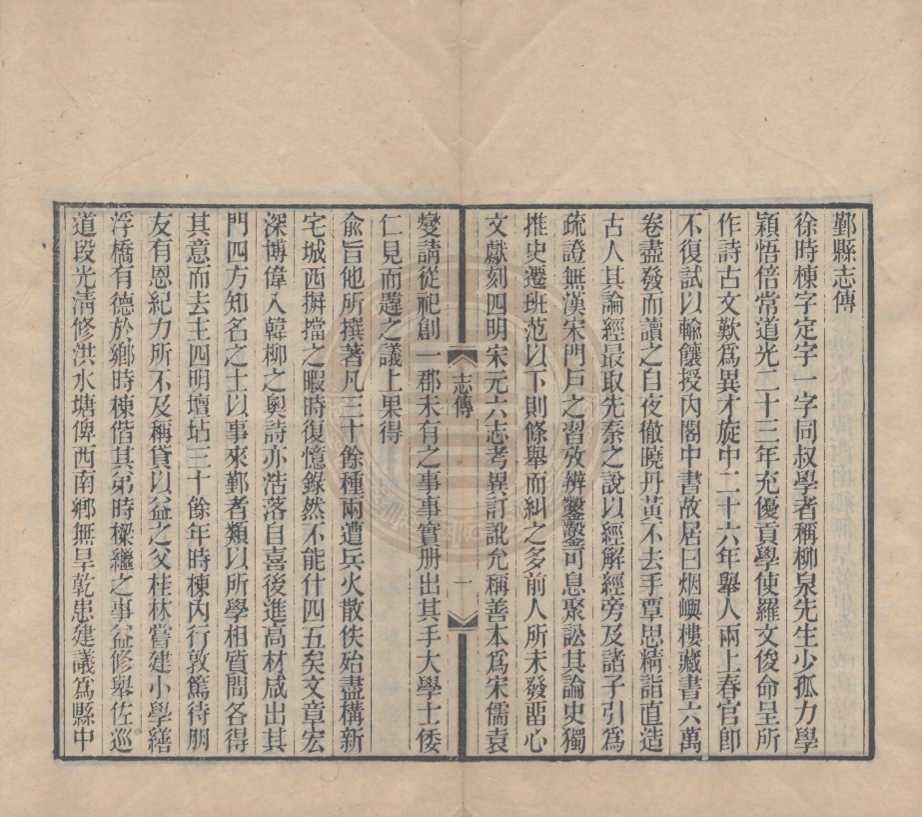 鄞縣志傳
徐時棟字定宇一字同叔學者稱柳泉先生少孤力學
穎悟倍常道光二十三年充優貢學使羅文俊命呈所
作詩古文歎爲異才旋中二十六年舉人兩上春官卽
不復試以輸饟授內閣中書故居曰烟嶼樓藏書六萬
卷盡發而讀之自夜徹曉丹黃不去手覃思精詣直造
古人其論經最取先秦之說以經解經旁及諸子引爲
疏證無漢宋門戶之習攷辨鑿鑿可息聚訟其論史獨
推史遷班范以下則條舉而糾之多前人所未發畱心
文獻刻四明宋元六志考異訂訛允稱善本爲宋儒袁
志傳
一
燮請從祀創一郡未有之事事實册出其手大學士倭
仁見而韙之議上果得
兪旨他所撰著凡三十餘種兩遭兵火散佚始盡構新
宅城西摒擋之暇時復憶錄然不能什四五矣文章宏
深博偉入韓柳之奧詩亦浩落自喜後進高材咸出其
門四方知名之士以事來鄞者類以所學相質問各得
其意而去主四明壇坫三十餘年時棟內行敦篤待朋
友有恩紀力所不及稱貸以益之父桂林嘗建小學繕
浮橋有德於鄕時棟偕其弟時樑繼之事益修舉佐巡
道段光淸修洪水塘俾西南鄕無旱乾患建議爲縣中